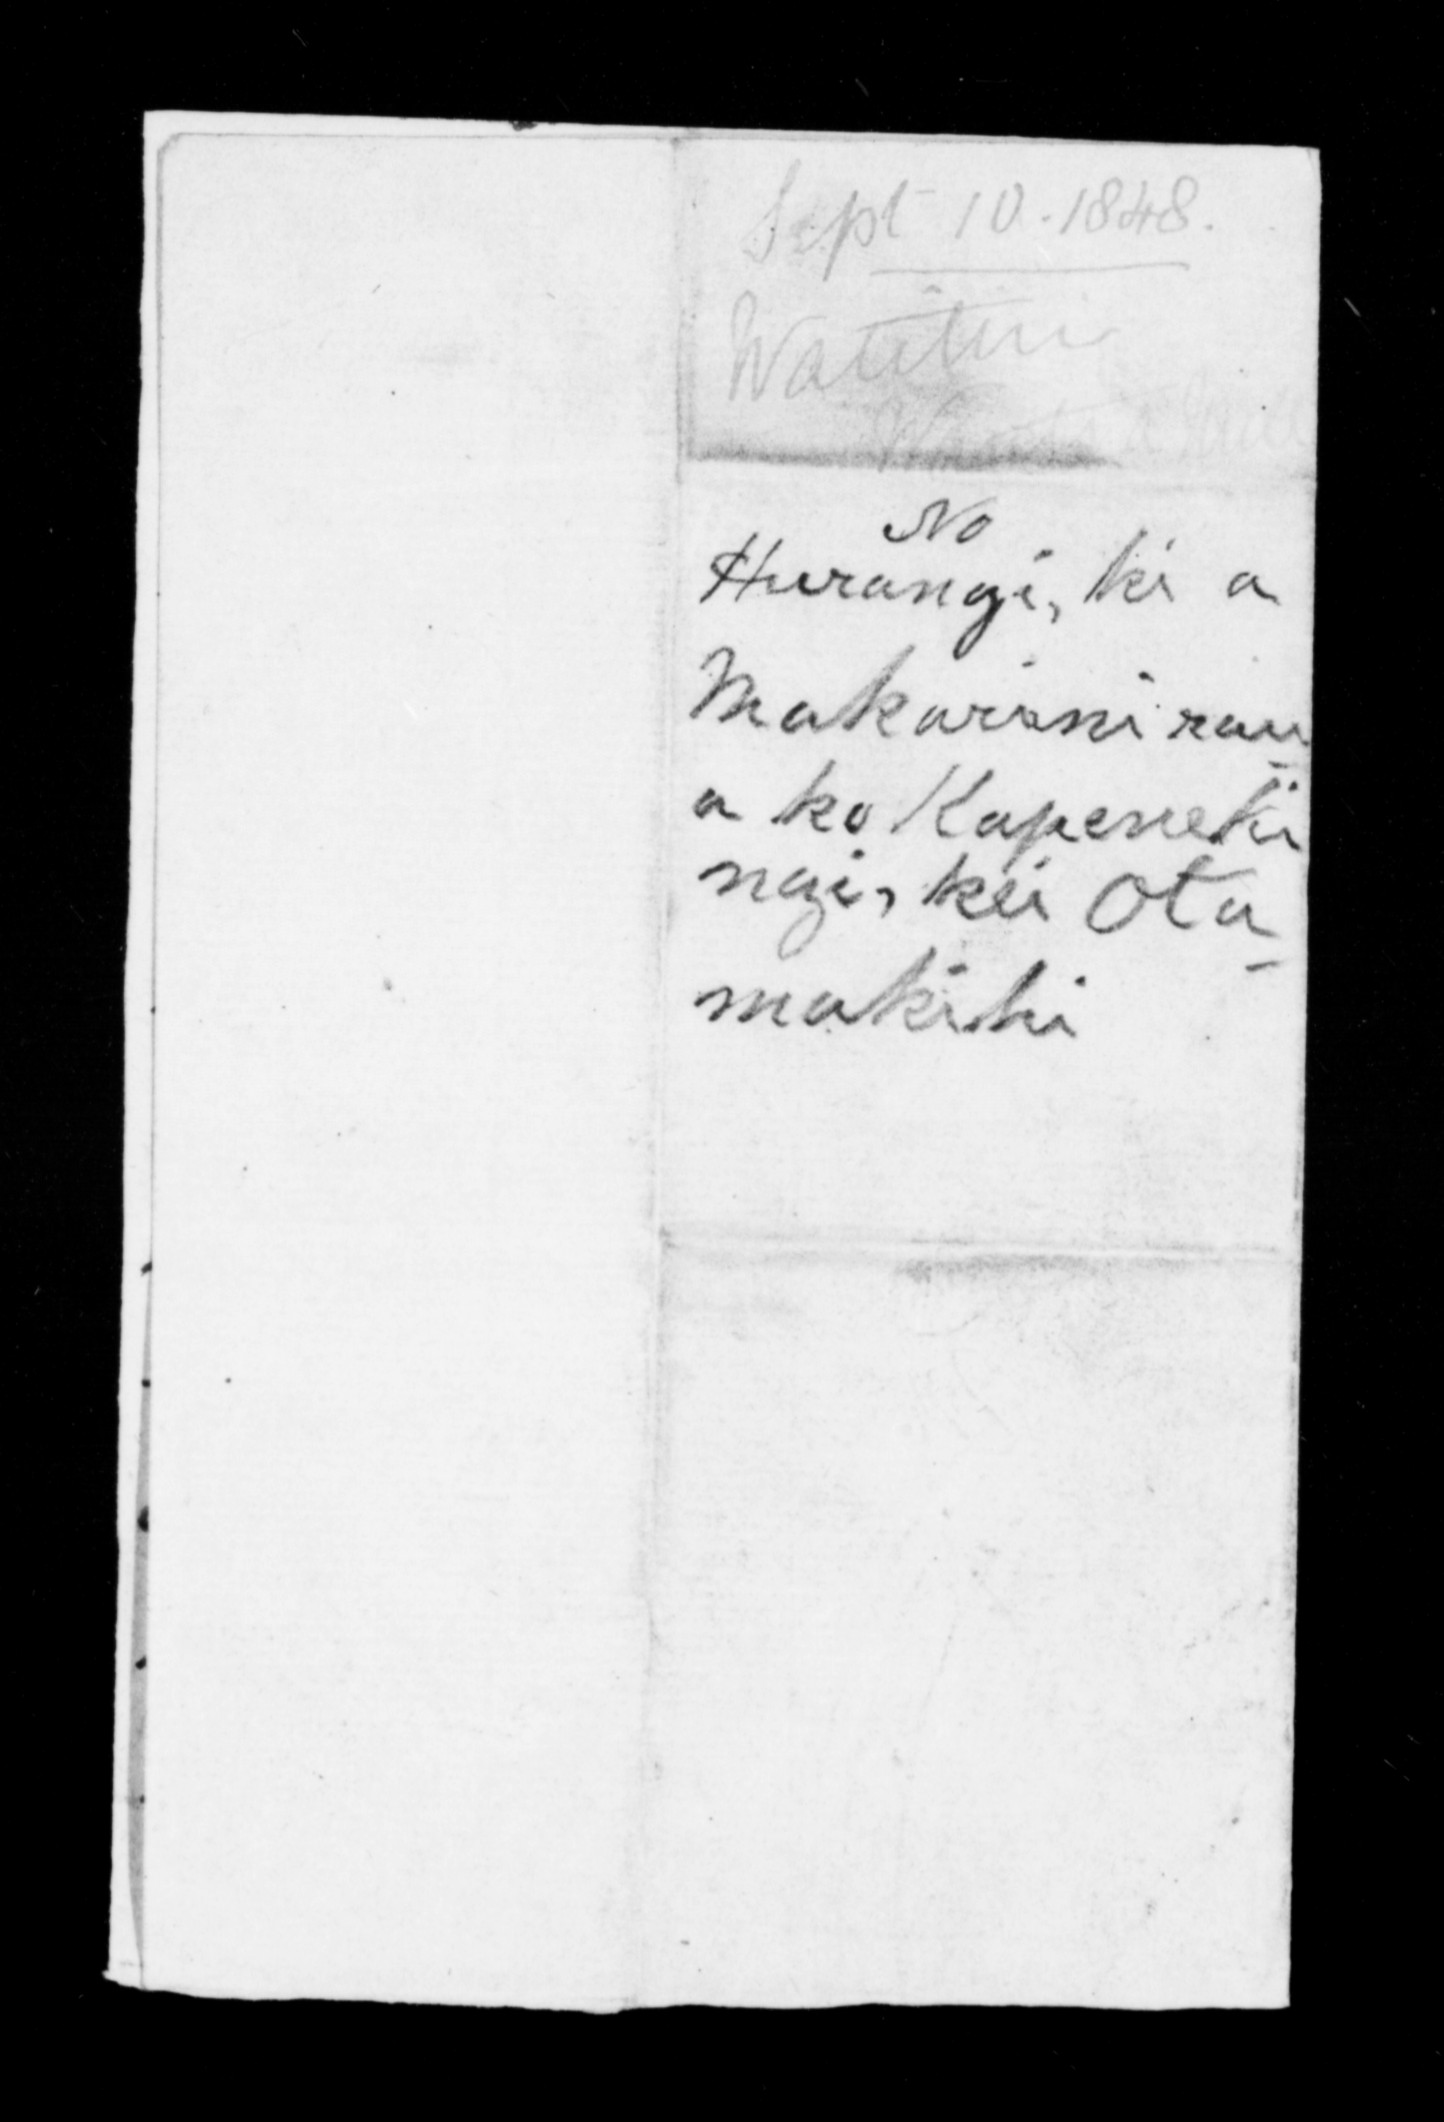 Sept 10. 1848.
No
Hurangi, ki a
Makarini rau
a ko Kapeneti
ngi, kei Ota
makihi